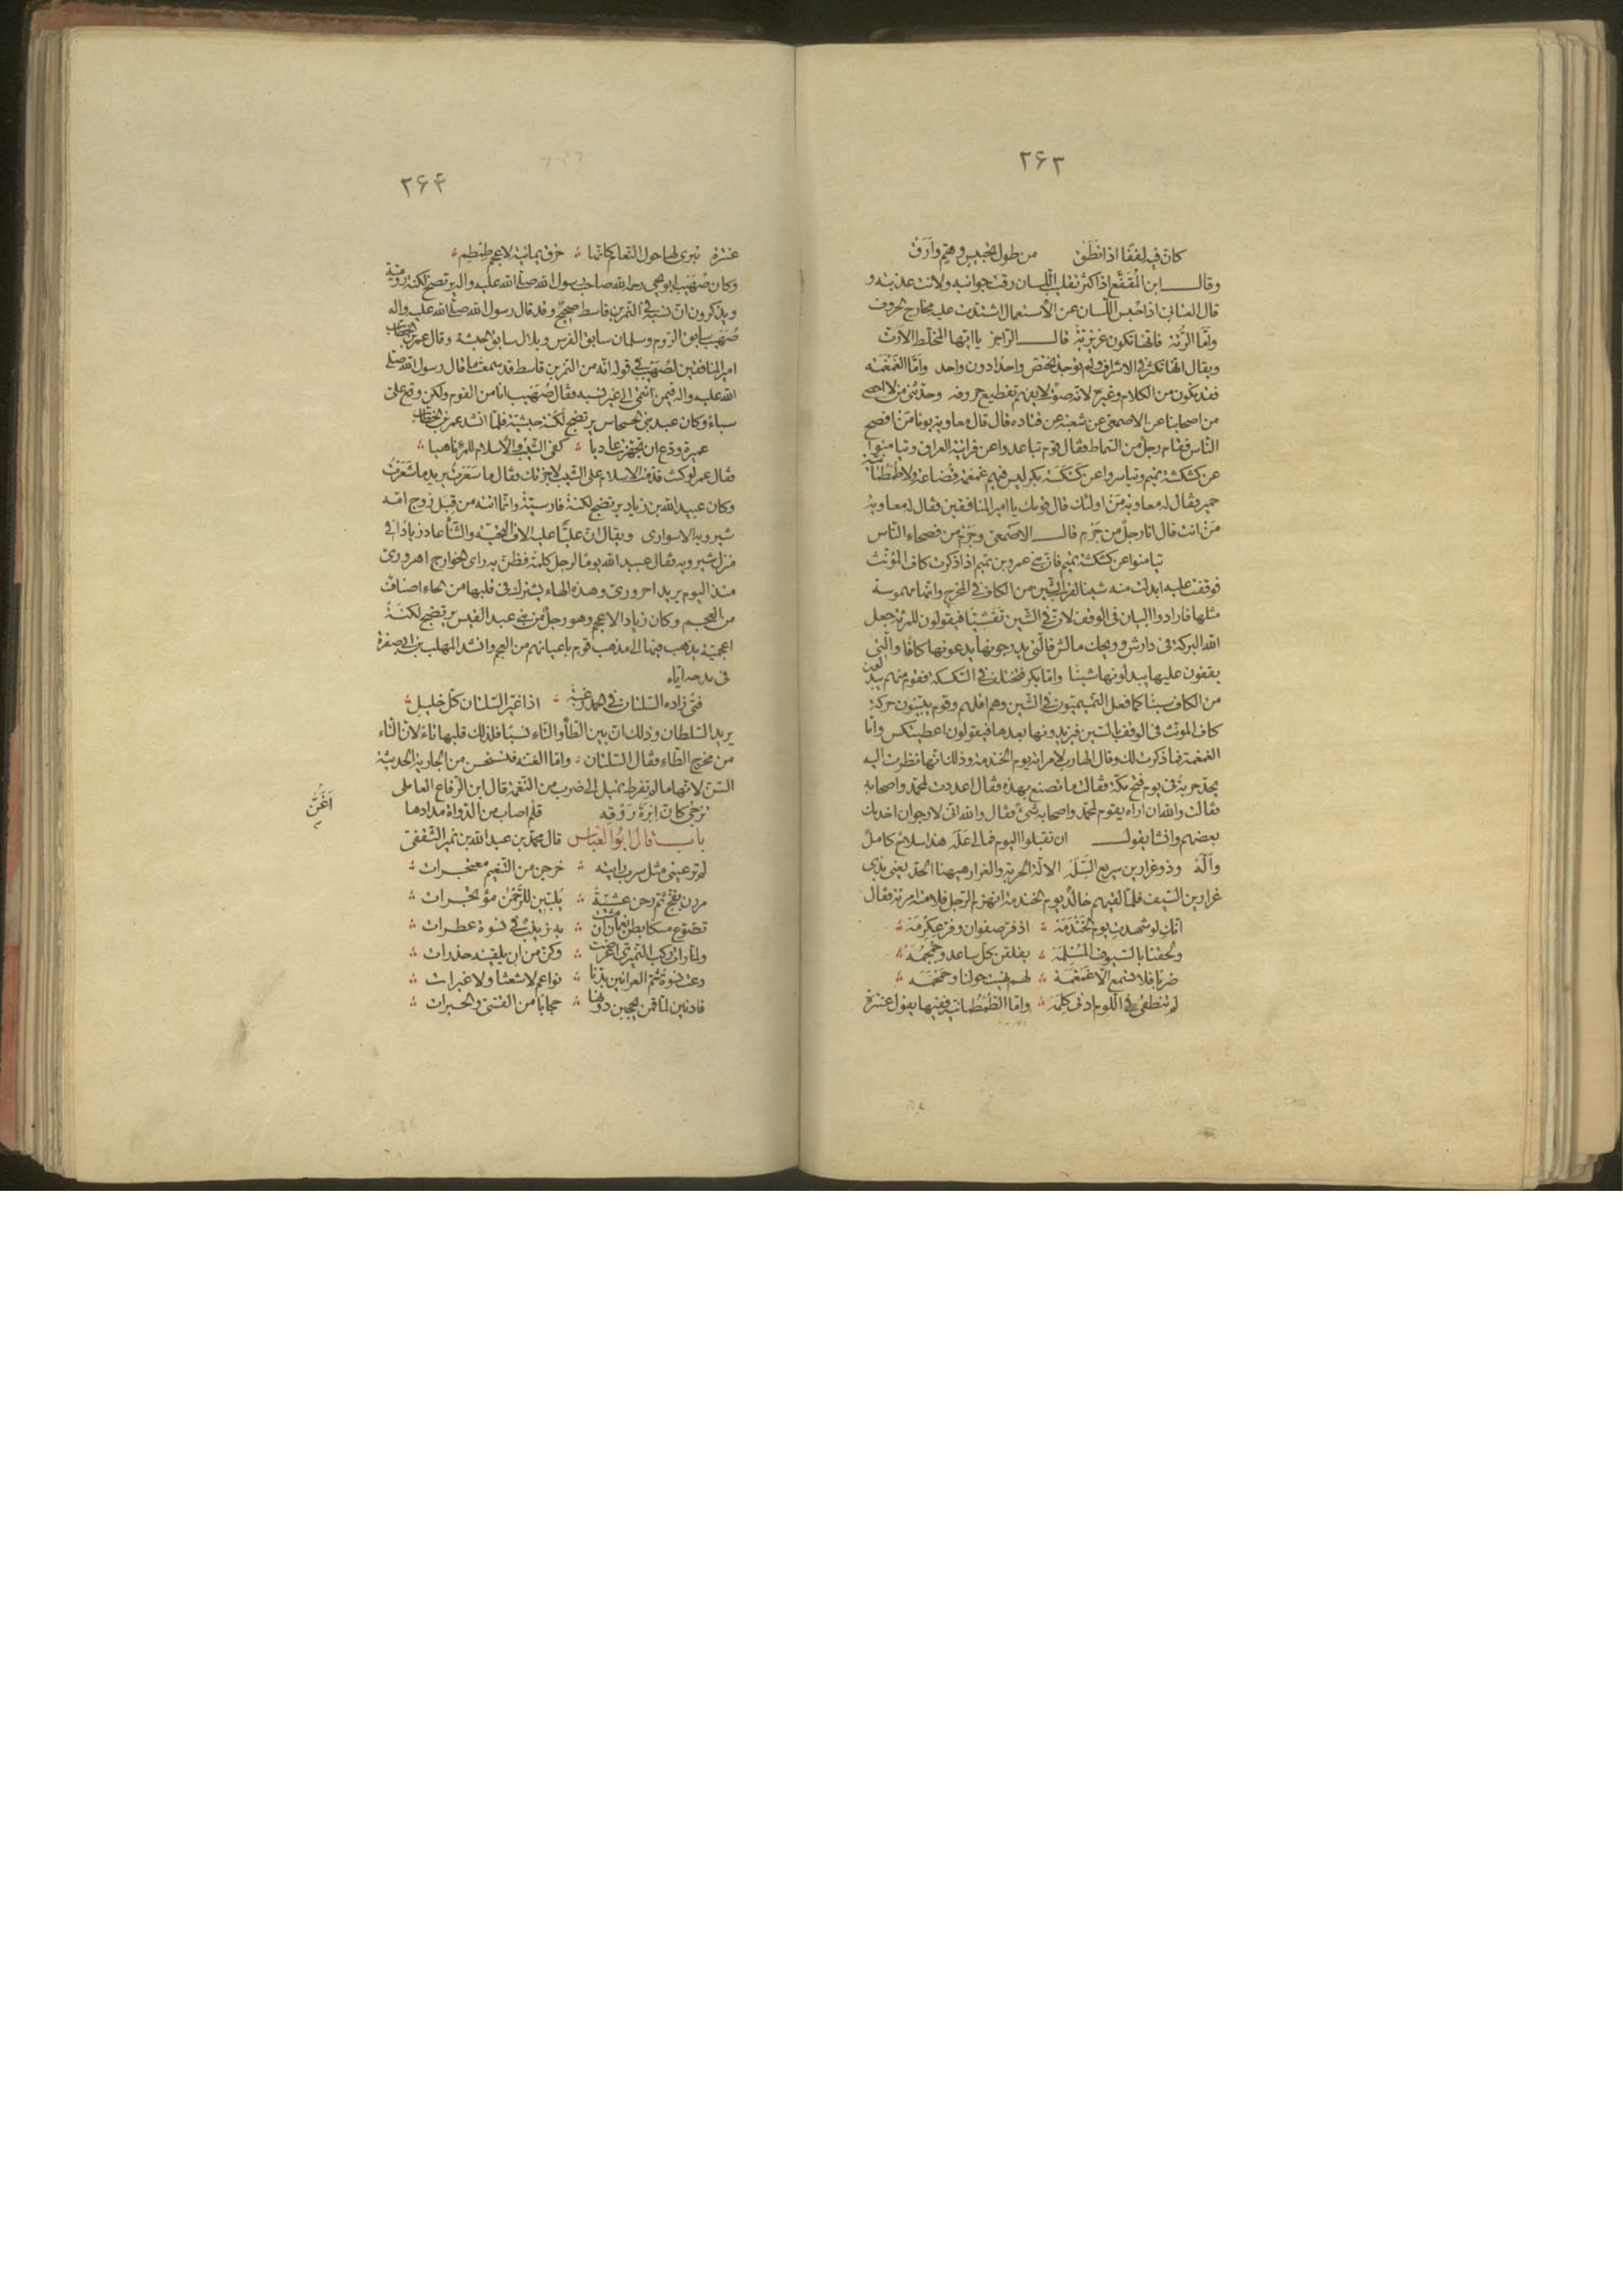 ٢۶٣
كان فيه لففا اذا نطق من طول تحبيس وهم وارق
وقال ابن المقفع اذا كثر تقليب اللسان رقت جوانبه ولانت عذبته و
قال العتابى اذا حبس اللسان عن الاستعمال اشتدت عليه مخارج الحروف
واما الرتة فانها تكون غريزية قال الراجز يا ايها المخلط الارت
ويقال انها تكثر فى الاشراف ولم توجد تختص واحدا دون واحد واما الغمغمة
فقد تكون من الكلام وغيره لانه صوت لا يفهم تقطيع حروفه وحدثنى من لا احصى
من اصحابنا عن الاصمعى عن شعبة عن قتاده قال قال معاوية يوما من افصح
الناس فقام رجل من السماط فقال قوم تباعدوا عن فراتية العراق وتيامنوا
عن كشكشة تميم وتياسروا عن كسكسة بكر ليس فيهم غمغمة قضاعة ولا طمطمانية
حمير فقال له معاوية من اولئك قال قومك يا امير المنافقين فقال له معاوية
من انت قال انا رجل من جرم قال الاصمعى وجرم من فصحاء الناس
تيامنوا عن كشكشة تميم فان بنى عمرو بن تميم اذا ذكرت كاف المؤنث
فوقفت عليه ابدلت منه شينا لقرب الشين من الكاف فى المخرج وانها مهموسة
مثلها فارادوا البيان فى الوقف لان فى الشين تفشيا فيقولون للمرئة جعل
الله البركة فى دارش وويحك مالش فالتى يدرجونها يدعونها كافا والتى
يقفون عليها يبدلونها شينا واما بكر فتختلف فى الكسكسة فقوم منهم يبدلون
من الكاف سينا كما فعل التميميون فى الشين وهم اقلهم وقوم يبينون حركة
كاف المونث فى الوقف بالسين فيزيدونها بعدها فيقولون اعطيتكس واما
الغمغمة فما ذكرت لك وقال الهارب لامراته يوم الخندمة وذلك انها نظرت اليه
يحد حربة فى يوم فتح مكة فقالت ما تصنع بهذه فقال اعددت لمحمد واصحابه
فقالت والله ان اراه يقوم لمحمد واصحابه شئ فقال والله انى لارجوان اخدمك
بعضهم وانشا يقول ان تقبلوا اليوم فمالى عله هذا سلاح كامل
واله وذو غرارين سريع السله الالة الحربة والغرار هيهنا الحد يعنى بذى
غرارين السيف فلما لقيهم خالد يوم الخندمة انهزم الرجل فلامته مرئة فقال
انك لو شهدت يوم الخندمة اذ فر صفوان وفر عكرمة
ولحقتنا بالسيوف المسلمة يفلقن كل ساعد وجمجمة
ضربا فلا تسمع الا غمغمة لهم نهيت حولنا وحمحمه
لم تنطقى فى اللوم ادنى كلمة واما الطمطمانية ففيها يقول عنترة
٢۶۴
عنترة تبرى لها حول النعام كانها حزق يمانية لاعجم طمطم
وكان صهيب ابو يحيى رحمه الله صاحب رسول الله صلى الله عليه واله يرتضخ لكنة رومية
ويذكرون ان نسبه فى النمر بن قاسط صحيح وقد قال رسول الله صلى الله عليه واله
صهيب سابق الروم وسلمان سابق الفرس وبلال سابق الحبشة وقال عمر بن الخطاب
امير المنافقين لصهيب فى قوله انه من النمر بن قاسط قد سمعت ما قال رسول الله صلى
الله عليه واله فيمن انتمى الى غير نسبه فقال صهيب انا من القوم ولكن وقع على
سباء وكان عبد بنى الحسحاس يرتضخ لكنة حبشية فلما انشد عمر بن الخطاب
عميرة ودع ان تجهزت غاديا كفى الشيب والاسلام للمرء ناهيا
فقال عمر لو كنت قدمت الاسلام على الشيب لاجزتك فقال ما سعرت يريد ما شعرت
وكان عبيد الله بن زياد يرتضخ لكنة فارسية وانما اتته من قبل زوج امه
شيرويه الاسوارى ويقال ان عليا عليه الاف التحية والثنأ عاد زيادا فى
منزل شيرويه فقال عبيد الله يوما لرجل كلمة فظن به راى الخوارج اهرورى
منذ اليوم يريد احرورى وهذه الهاء يشترك فى قلبها من الحاء اصناف
من العجم وكان زياد الاعجم وهو رجل من بنى عبد القيس يرتضخ لكنة
اعجمية يذهب فيها الى مذهب قوم باعيانهم من العجم وانشد المهلب بن ابى صفرة
فى مدحه اياه
فتى زاده السلتان فى الحمد رغبة اذا غير السلتان كل خليل
يريد السلطان وذلك ان بين الطأ والتاء نسبا فلذلك قلبها تاء لان التاء
من مخرج الطاء فقال السلتان واما الغنة فتستحسن من الجارية الحديثة
السن لانها ما لم تفرط تميل الى ضرب من النغمة قال ابن الرقاع العاملى
تزجى كان ابرة روقه قلم اصاب من الدواة مدادها
اغن
باب قال ابو العباس قال محمد بن عبد الله بن نمير الثقفى
لم تر عينى مثل سرب رايته خرجن من التنعيم معتجرات
مررن بفخ ثم رحن عشية يلبين للرحمن مؤتجرات
تضوع مسكا بطن نعمان ان مشت به زينب فى نسوة عطرات
ولما رات ركب النميرى اعرضت وكن من ان يلقينه حذرات
دعت نسوة شم العرانين بدنا نواعم لا شعثا ولا غبرات
فادنين لما قمن يحجبن دونها حجابا من القسى والحبرات